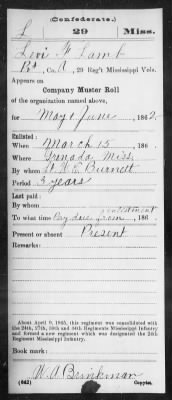 (Confederate.)
L 29 Miss.
Levi F Lamb
Pvt, Co. A, 29 Reg't Mississippi Vols.
Appears on
Company Muster Roll
of the organization named above,
for May & June, 1862.
Enlisted:
When March 15, 186 .
Where Grenada Miss.
By whom W. E. Burnett
Period 3 years
Last paid:
By whom
enlistment
To what time Pay due from, 186 .
Present or absent Present
Remarks:
About April 9, 1865, this regiment was consolidated with
the 24th, 27th, 30th and 34th Regiments Mississippi Infantry
and formed a new regiment which was designated the 24th
Regiment Mississippi Infantry.
Book mark:
W. A. Brinkman
(642) Copyist.